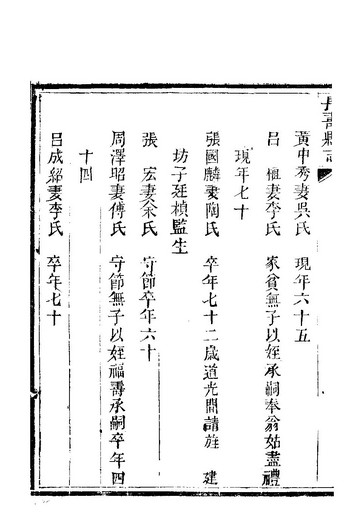 長壽縣志
黃中秀妻吳氏　現年六十五
呂　植妻李氏　家貧無子以姪承嗣奉翁姑盡禮
現年七十
張國麟妻陶氏　卒年七十二歲道光間請旌　建
坊子廷楨監生
張　宏妻余氏　守節卒年六十
周澤昭妻傅氏　守節無子以姪福壽承嗣卒年四
十四
呂成紹妻李氏　卒年七十